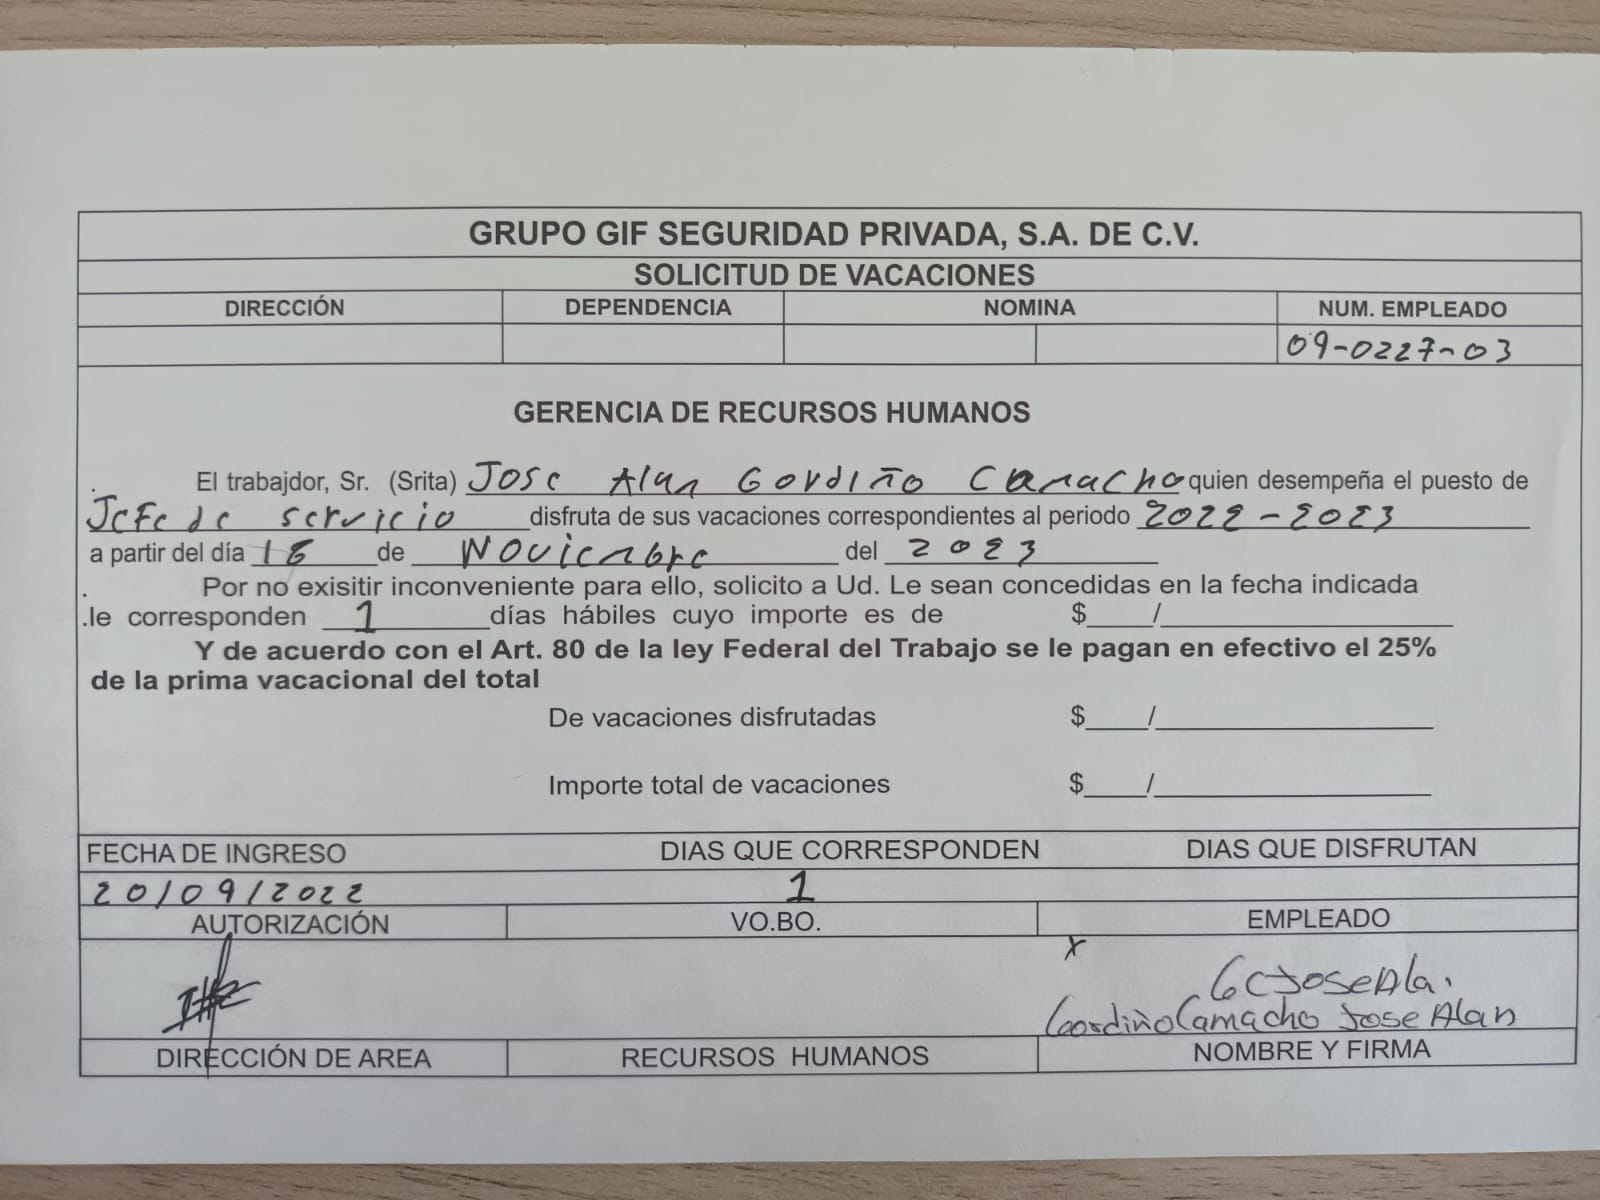 GRUPO GIF SEGURIDAD PRIVADA, S.A. DE C.V.
SOLICITUD DE VACACIONES
DIRECCIÓN DEPENDENCIA NOMINA NUM. EMPLEADO
09-0227-03
GERENCIA DE RECURSOS HUMANOS
. El trabajdor, Sr. (Srita) Jose Alan Gordiño Camacho quien desempeña el puesto de
Jefe de servicio disfruta de sus vacaciones correspondientes al periodo 2022-2023
a partir del día de Noviembre del 2023
. Por no exisitir inconveniente para ello, solicito a Ud. Le sean concedidas en la fecha indicada
.le corresponden 1 días hábiles cuyo importe es de $____/____
Y de acuerdo con el Art. 80 de la ley Federal del Trabajo se le pagan en efectivo el 25%
de la prima vacacional del total
De vacaciones disfrutadas $____/____
Importe total de vacaciones $____/____
FECHA DE INGRESO DIAS QUE CORRESPONDEN DIAS QUE DISFRUTAN
20/09/2022 1
AUTORIZACIÓN VO.BO. EMPLEADO
x
GCJoseAla.
Gordiño Camacho Jose Alan
DIRECCIÓN DE AREA RECURSOS HUMANOS NOMBRE Y FIRMA